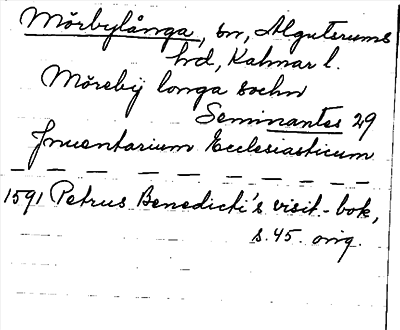 Mörbylånga, sn, Algutsrums
hd, Kalmar l.
Möreby longa sochn
Seminantes 29
Inuentarium Ecclesiasticum
1591 Petrus Benedicti's visit.-bok,
s. 45. orig.